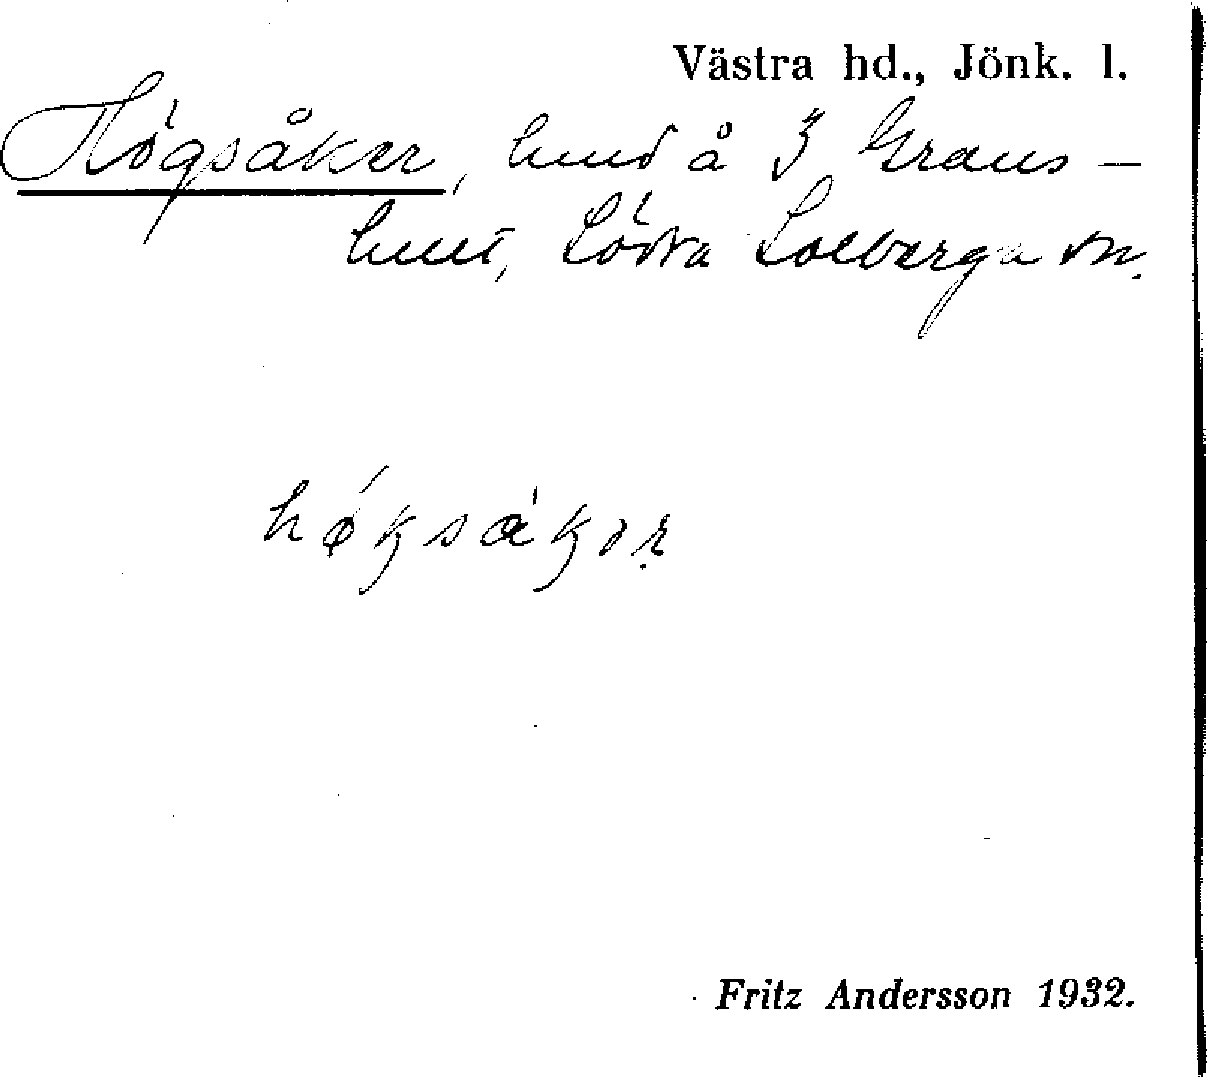 Västra hd., Jönk. l.
Högsåker, lund å 3 Grans-
hult, Södra Solberga sn.
høksåkər
Fritz Andersson 1932.